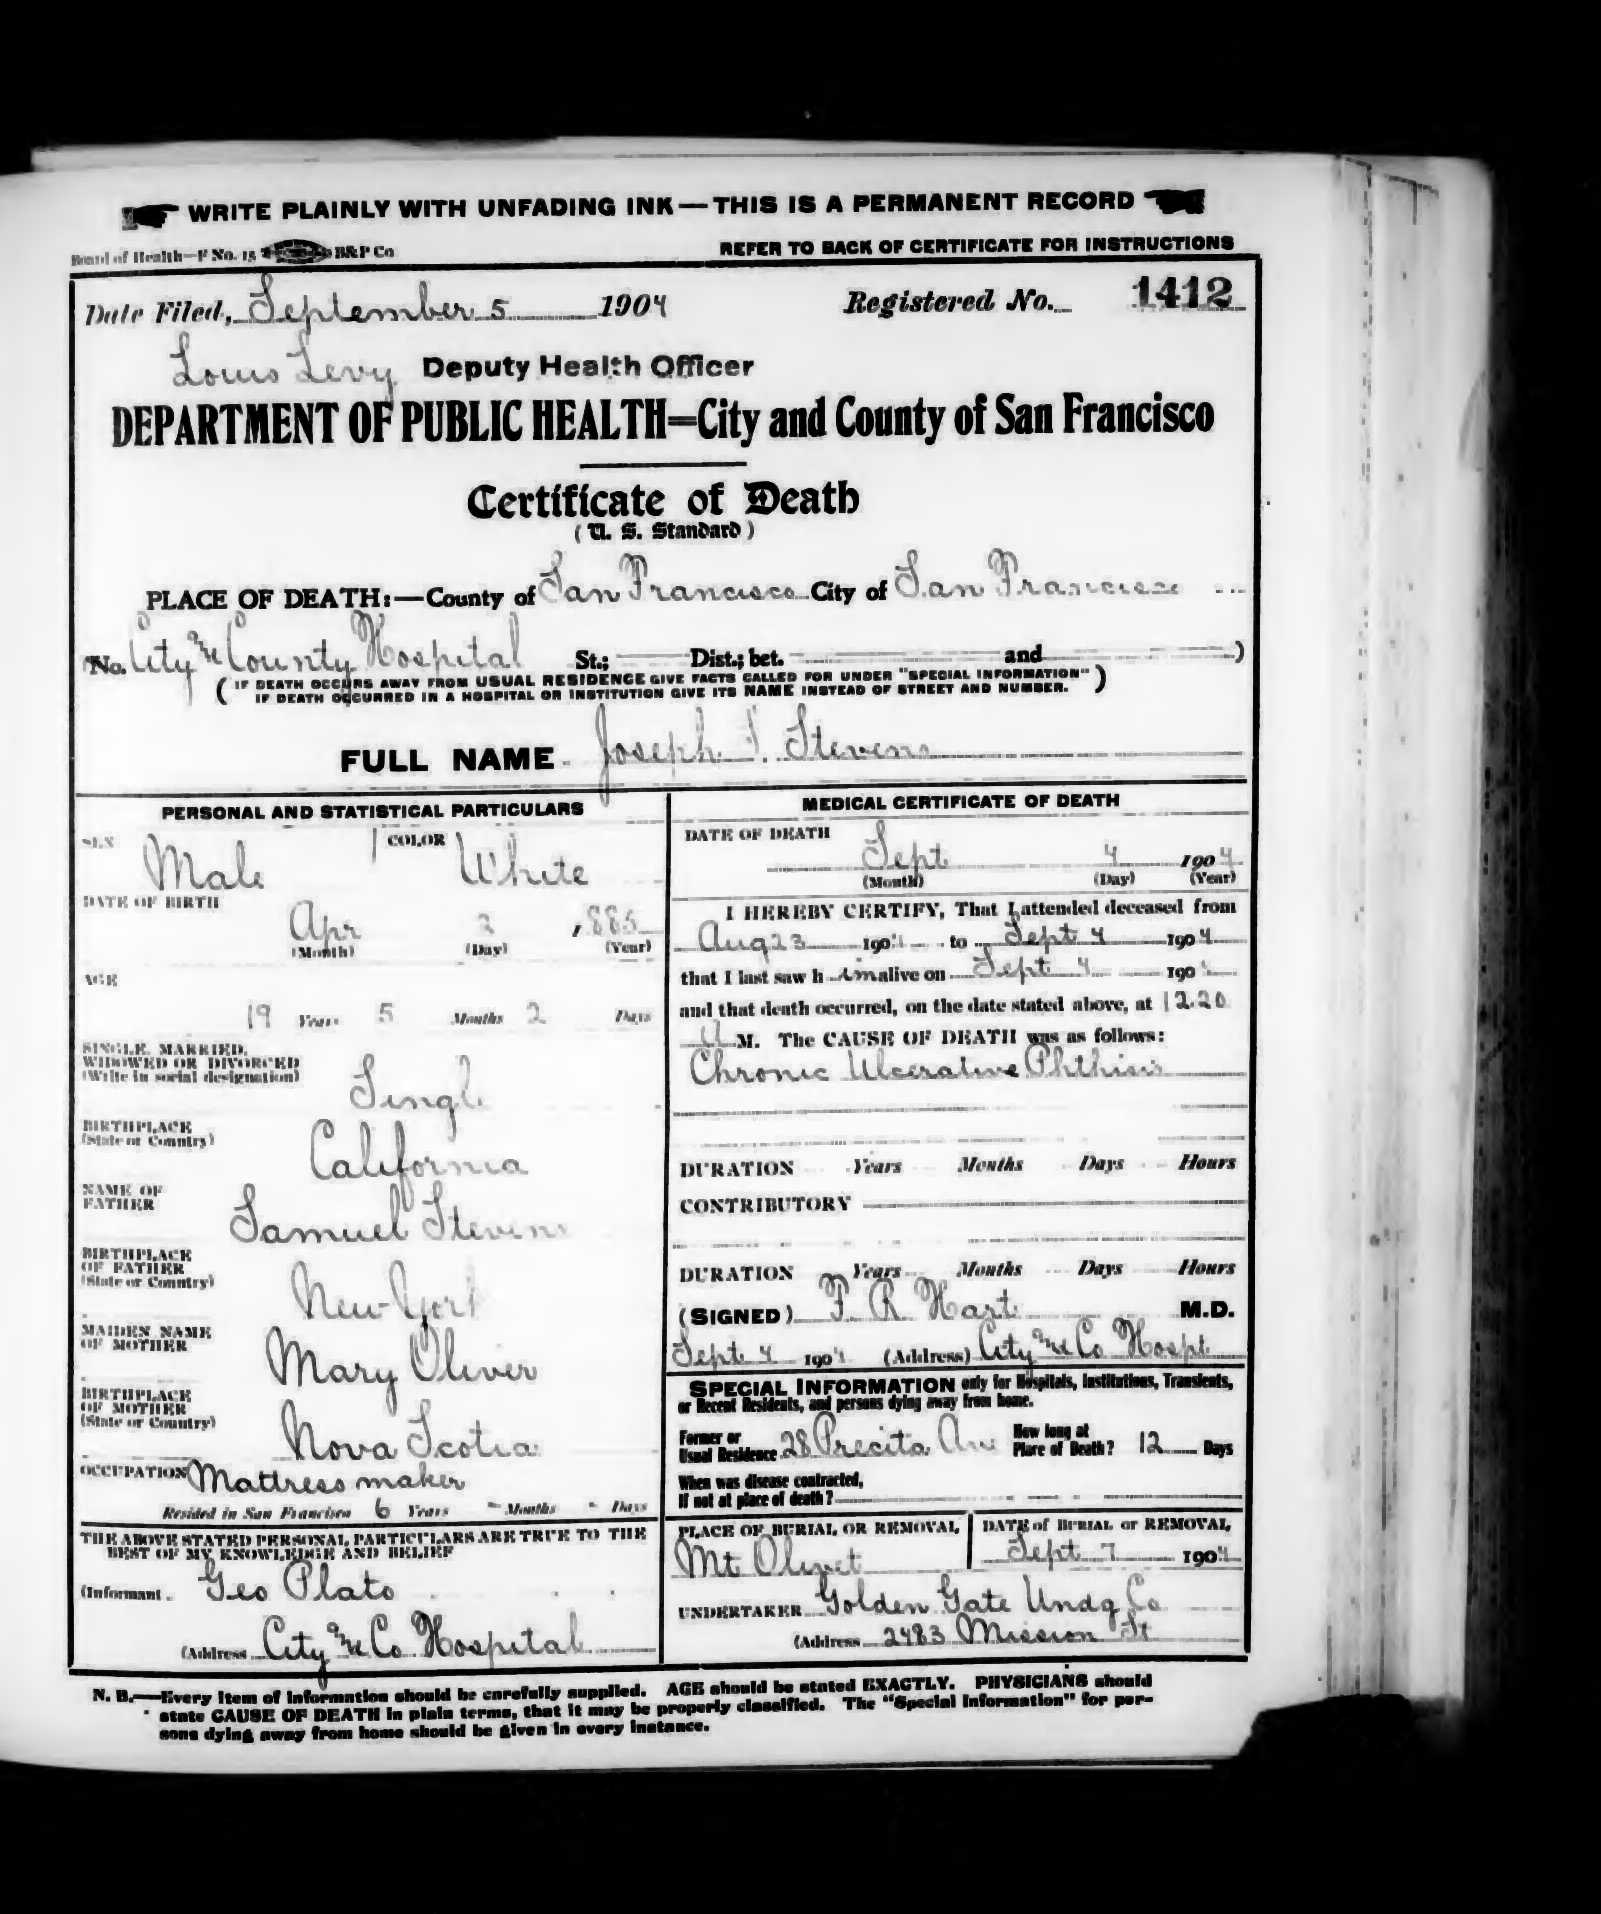 WRITE PLAINLY WITH UNFADING INK — THIS IS A PERMANENT RECORD
Board of Health—F No. 15 B&P Co REFER TO BACK OF CERTIFICATE FOR INSTRUCTIONS
Date Filed, September 5 1904 Registered No. 1412
Louis Levy Deputy Health Officer
DEPARTMENT OF PUBLIC HEALTH=City and County of San Francisco
Certificate of Death
( U. S. Standard )
PLACE OF DEATH:—County of San Francisco City of San Francisco
No. City and County Hospital St.; Dist.; bet. and )
( IF DEATH OCCURS AWAY FROM USUAL RESIDENCE GIVE FACTS CALLED FOR UNDER "SPECIAL INFORMATION" )
IF DEATH OCCURRED IN A HOSPITAL OR INSTITUTION GIVE ITS NAME INSTEAD OF STREET AND NUMBER.
FULL NAME Joseph Stevens
PERSONAL AND STATISTICAL PARTICULARS
SEX Male COLOR White
DATE OF BIRTH
Apr 2 , 885
(Month) (Day) (Year)
AGE
19 Years 5 Months 2 Days
SINGLE, MARRIED,
WIDOWED OR DIVORCED
(Write in social designation) Single
BIRTHPLACE
(State or Country) California
NAME OF
FATHER Samuel Stevens
BIRTHPLACE
OF FATHER
(State or Country) New York
MAIDEN NAME
OF MOTHER Mary Oliver
BIRTHPLACE
OF MOTHER
(State or Country) Nova Scotia
OCCUPATION Mattress maker
Resided in San Francisco 6 Years - Months - Days
THE ABOVE STATED PERSONAL PARTICULARS ARE TRUE TO THE
BEST OF MY KNOWLEDGE AND BELIEF
(Informant Geo Plato
(Address City and Co Hospital
MEDICAL CERTIFICATE OF DEATH
DATE OF DEATH
Sept 4 1904
(Month) (Day) (Year)
I HEREBY CERTIFY, That I attended deceased from
Aug 23 1904 to Sept 4 1904
that I last saw h im alive on Sept 4 190
and that death occurred, on the date stated above, at 12.20
A M. The CAUSE OF DEATH was as follows:
Chronic Ulcerative Phthisis
DURATION Years Months Days Hours
CONTRIBUTORY
DURATION Years Months Days Hours
(SIGNED) F. R. Hart M.D.
Sept 4 1904 (Address) City and Co Hospt
SPECIAL INFORMATION only for Hospitals, Institutions, Transients,
or Recent Residents, and persons dying away from home.
Former or
Usual Residence 28 Precita Ave How long at
Place of Death? 12 Days
When was disease contracted,
If not at place of death?
PLACE OF BURIAL OR REMOVAL DATE of BURIAL or REMOVAL
Mt Olivet Sept 7 1904
UNDERTAKER Golden Gate Undg Co
(Address 2483 Mission St
N. B.—Every item of information should be carefully supplied. AGE should be stated EXACTLY. PHYSICIANS should
state CAUSE OF DEATH in plain terms, that it may be properly classified. The "Special Information" for per-
sons dying away from home should be given in every instance.